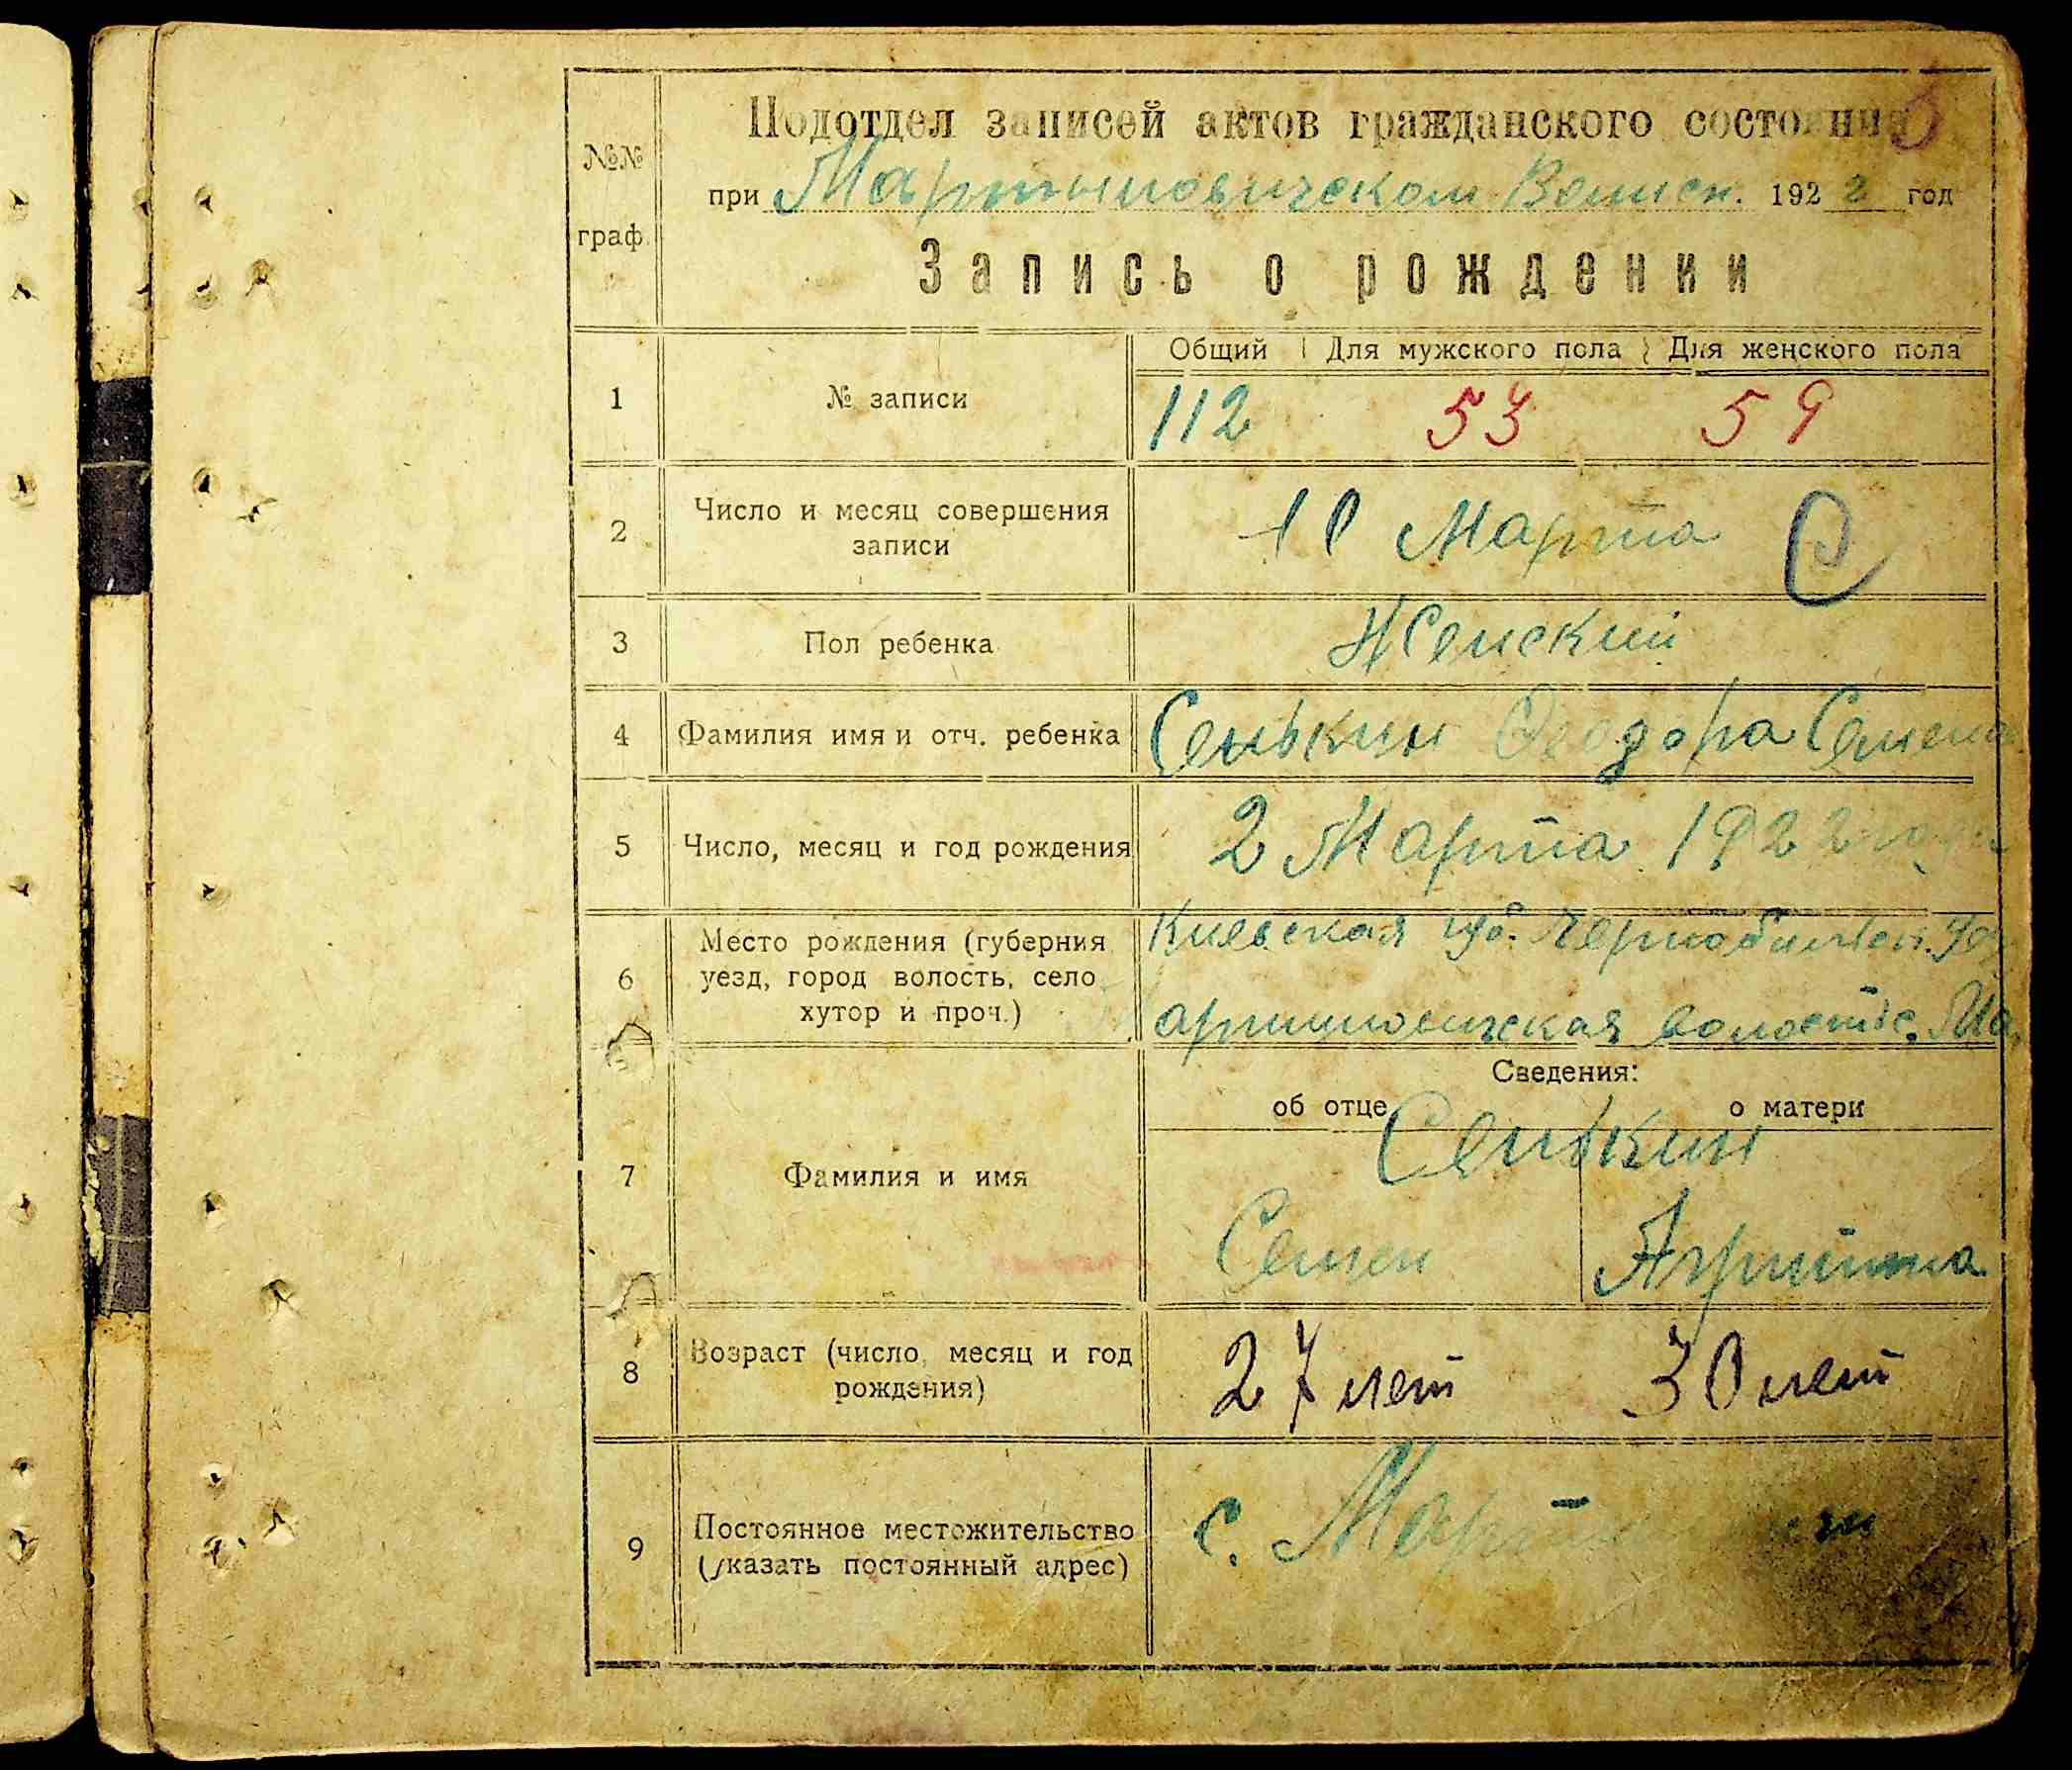 Подотдел записей актов гражданского состояния
№№
граф.
при Мартыновическом Волисп. 1922 год
Запись о рождении
Общий Для мужского пола Для женского пола
1 № записи 112 53 59
2 Число и месяц совершения записи 10 Марта
3 Пол ребенка Женский
4 Фамилия имя и отч. ребенка Сенькин Феодора Семена
5 Число, месяц и год рождения 2 Марта 1922 года
6 Место рождения (губерния уезд, город волость, село хутор и проч.) Киевская губ. Чернобильск. уе
Мартиновическая волость с. Ма.
Сведения:
об отце о матери
7 Фамилия и имя Сенькин
Семен
8 Возраст (число, месяц и год рождения) 27 лет 30 лет
9 Постоянное местожительство (указать постоянный адрес) с.